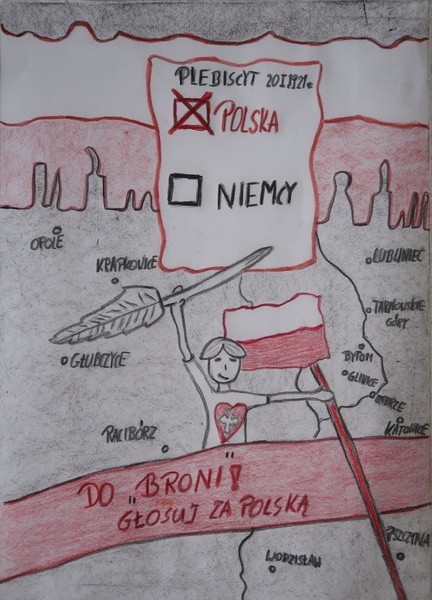 PLEBISCYT 20 I 1921r.
POLSKA
NIEMCY
OPOLE
KRAPKOVICE
LUBLINIEC
TARNOWSKIE
GÓRY
GŁUBCZYCE
BYTOM
GLIWICE
ZABRZE
KATOWICE
RACIBÓRZ
DO „BRONI"!
GŁOSUJ ZA POLSKĄ
PSZCZYNA
WODZISŁAW